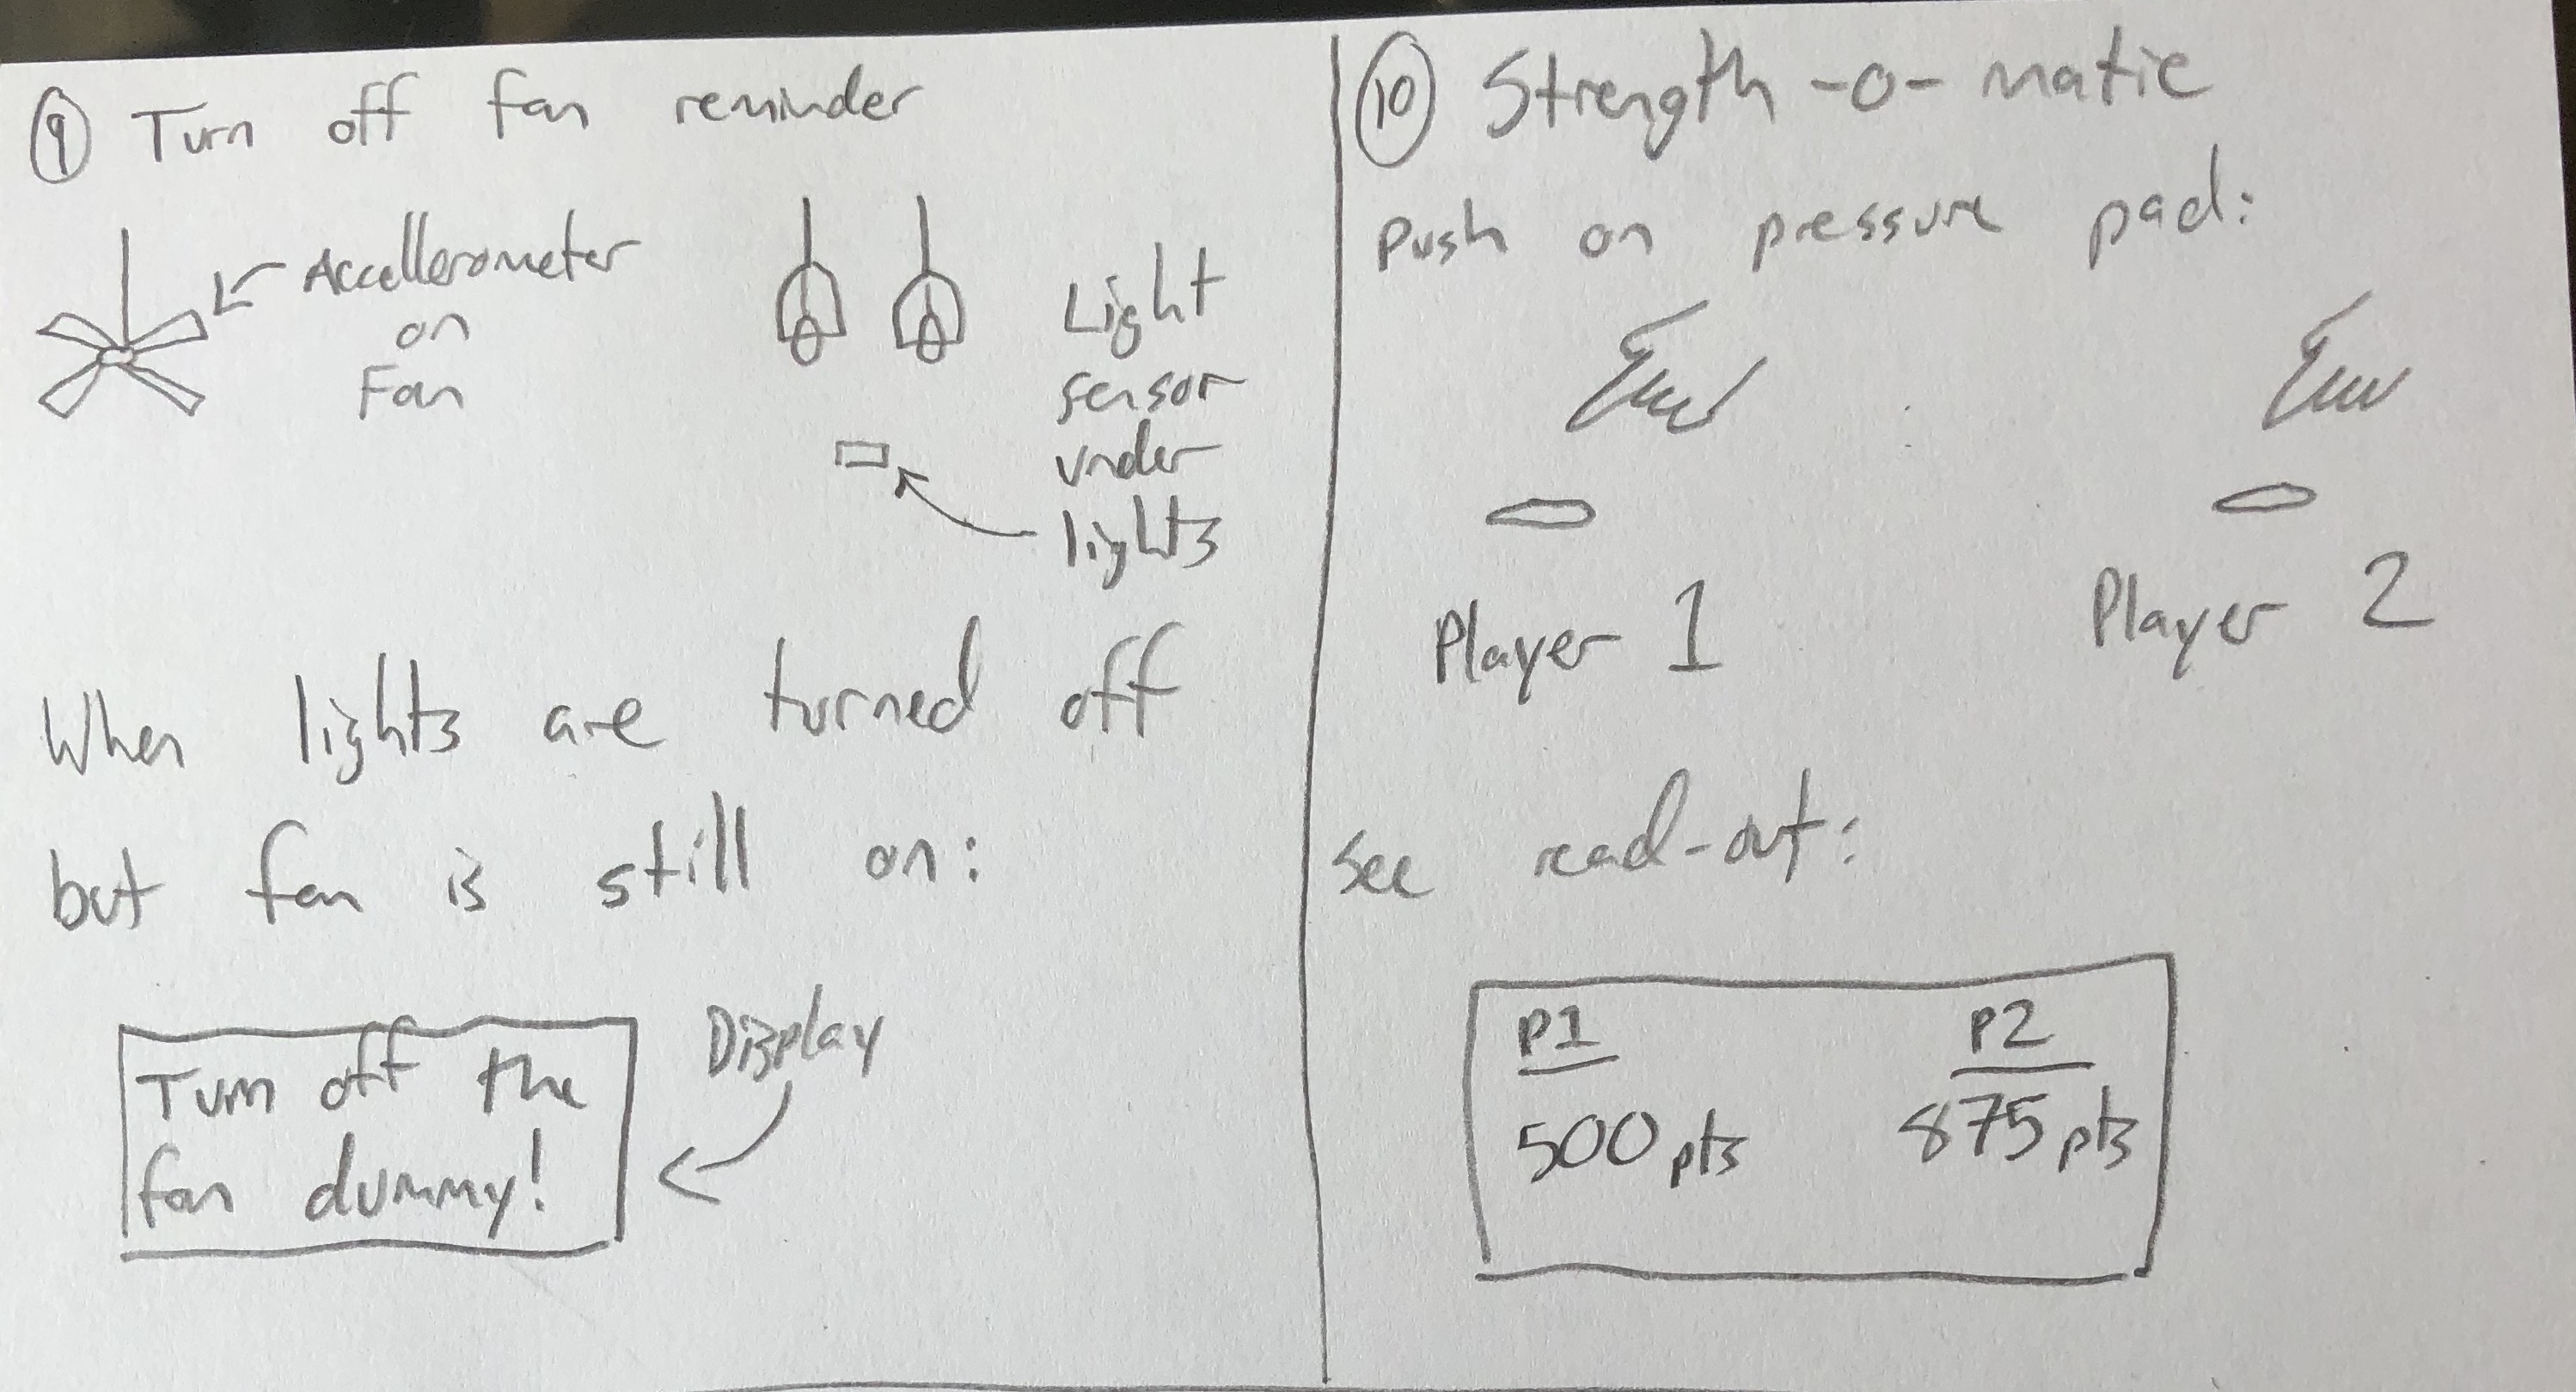 9 Turn off fan reminder
Accellerometer
on
Fan
Light
sensor
under
lights
When lights are turned off
but fan is still on:
Display
Turn off the
fan dummy!
10 Strength-o-matic
Push on pressure pad:
Player 1
Player 2
See read-out:
P1 P2
500 pts 875 pts